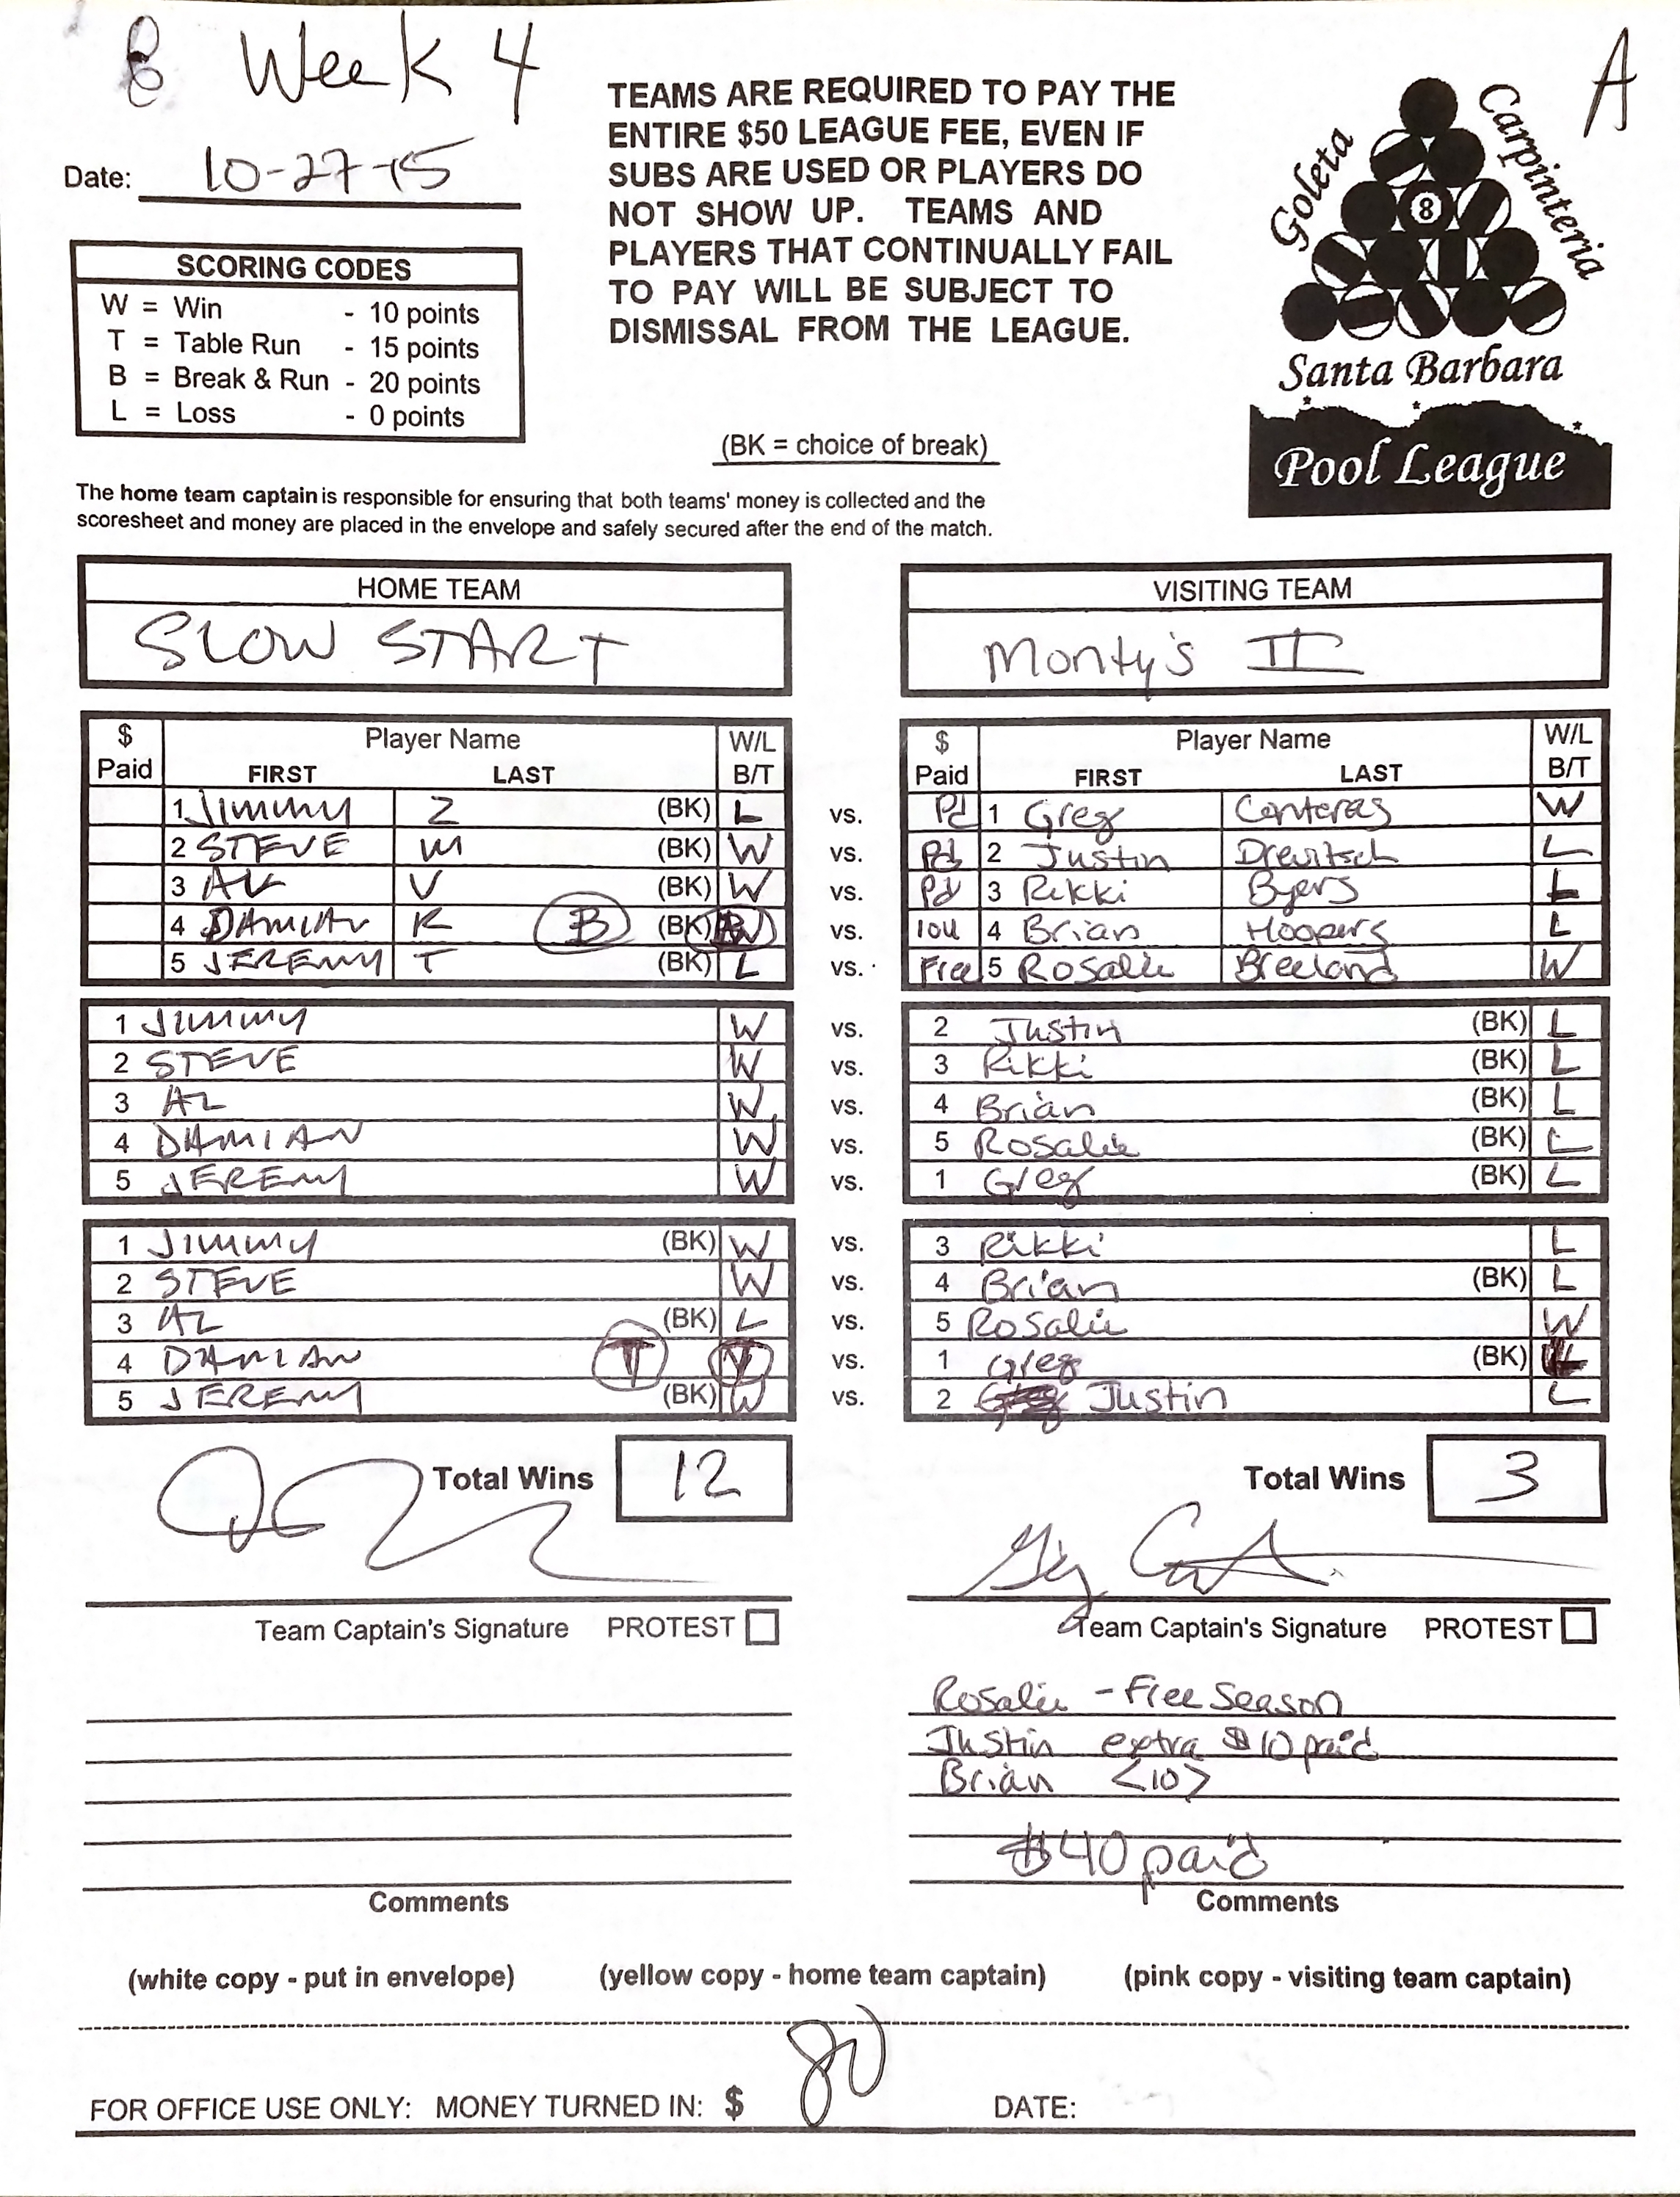 B Week 4
A
Date: 10-27-15
TEAMS ARE REQUIRED TO PAY THE
ENTIRE $50 LEAGUE FEE, EVEN IF
SUBS ARE USED OR PLAYERS DO
NOT SHOW UP. TEAMS AND
PLAYERS THAT CONTINUALLY FAIL
TO PAY WILL BE SUBJECT TO
DISMISSAL FROM THE LEAGUE.
Goleta
Carpinteria
8
Santa Barbara
Pool League
SCORING CODES
W = Win - 10 points
T = Table Run - 15 points
B = Break & Run - 20 points
L = Loss - 0 points
(BK = choice of break)
The home team captain is responsible for ensuring that both teams' money is collected and the
scoresheet and money are placed in the envelope and safely secured after the end of the match.
HOME TEAM VISITING TEAM
SLOW START Monty's II
$ Paid Player Name FIRST LAST W/L B/T $ Paid Player Name FIRST LAST W/L B/T
1 JIMMY Z (BK) L vs. Pd 1 Greg Conteras W
2 STEVE M (BK) W vs. Pd 2 Justin Drewitsch L
3 AL V (BK) W vs. Pd 3 Rikki Byers L
4 DAMIAN K B (BK) vs. IOU 4 Brian Hoopers L
5 JEREMY T (BK) L vs. Free 5 Rosalie Breeland W
1 JIMMY W vs. 2 Justin (BK) L
2 STEVE W vs. 3 Rikki (BK) L
3 AL W vs. 4 Brian (BK) L
4 DAMIAN W vs. 5 Rosalie (BK) L
5 JEREMY W vs. 1 Greg (BK) L
1 JIMMY (BK) W vs. 3 Rikki L
2 STEVE W vs. 4 Brian (BK) L
3 AL (BK) L vs. 5 Rosalie W
4 DAMIAN T vs. 1 Greg (BK) L
5 JEREMY (BK) W vs. 2 Justin L
Total Wins 12 Total Wins 3
Team Captain's Signature PROTEST Team Captain's Signature PROTEST
Rosalie - Free Season
Justin extra $10 paid
Brian <10>
$40 paid
Comments Comments
(white copy - put in envelope) (yellow copy - home team captain) (pink copy - visiting team captain)
FOR OFFICE USE ONLY: MONEY TURNED IN: $ 80 DATE: